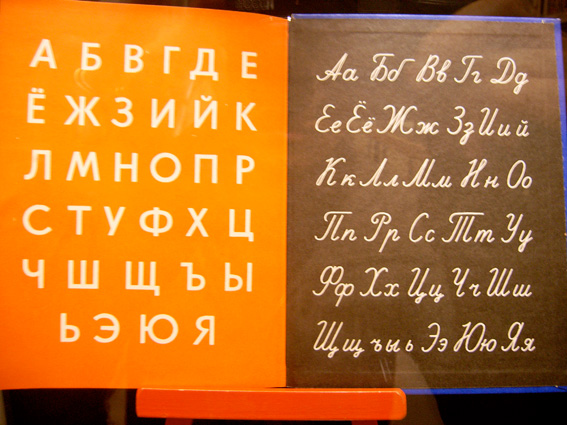 А Б В Г Д Е
Ё Ж З И Й К
Л М Н О П Р
С Т У Ф Х Ц
Ч Ш Щ Ъ Ы
Ь Э Ю Я
Аа Бб Вв Гг Дд
Ее Ёё Жж Зз Ии й
Кк Лл Мм Нн Оо
Пп Рр Сс Тт Уу
Фф Хх Цц Чч Шш
Щщ ъ ы ь Ээ Юю Яя